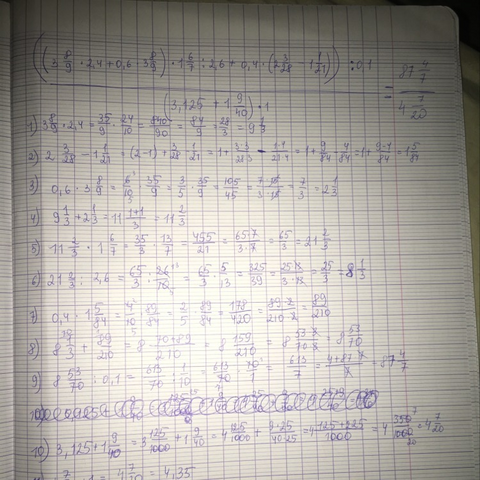 ((3 8/9 · 2,4 + 0,6 · 3 8/9) · 1 6/7 : 2,6 + 0,4 · (2 3/28 - 1 1/21)) : 0,1
(3,125 + 1 9/40) · 1
= 87 4/7 / 4 7/20
1) 3 8/9 · 2,4 = 35/9 · 24/10 = 840/90 = 84/9 = 28/3 = 9 1/3
2) 2 3/28 - 1 1/21 = (2-1) + 3/28 - 1/21 = 1 + 3·3/28·3 - 1·4/21·4 = 1 + 9/84 - 4/84 = 1 + 9-4/84 = 1 5/84
3) 0,6 · 3 8/9 = 6/10 · 35/9 = 3/5 · 35/9 = 105/45 = 7·15/3·15 = 7/3 = 2 1/3
4) 9 1/3 + 2 1/3 = 11 1+1/3 = 11 2/3
5) 11 2/3 · 1 6/7 = 35/3 · 13/7 = 455/21 = 65·7/3·7 = 65/3 = 21 2/3
6) 21 2/3 : 2,6 = 65/3 : 26/10 = 65/3 · 5/13 = 325/39 = 25·13/3·13 = 25/3 = 8 1/3
7) 0,4 · 1 5/84 = 4/10 · 89/84 = 2/5 · 89/84 = 178/420 = 89·2/210·2 = 89/210
8) 8 1/3 + 89/210 = 8 70+89/210 = 8 159/210 = 8 53·3/70·3 = 8 53/70
9) 8 53/70 : 0,1 = 613/70 : 1/10 = 613/70 · 10/1 = 613/7 = 87 4/7
10) 3,125 + 1 9/40 = 3 125/1000 + 1 9/40 = 4 125/1000 + 9·25/40·25 = 4 125+225/1000 = 4 350/1000 = 4 7/20
= 4 7/20 = 4,35